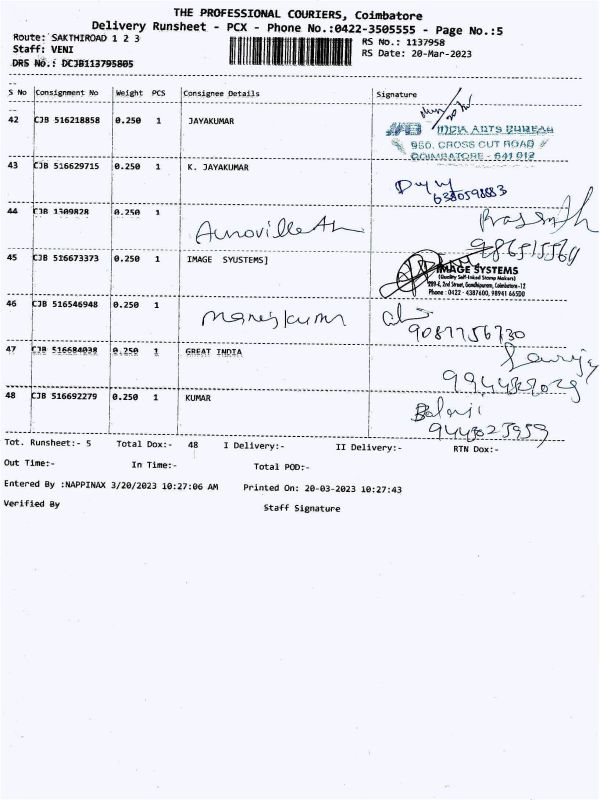 THE PROFESSIONAL COURIERS, Coimbatore
Delivery Runsheet - PCX - Phone No.:0422-3505555 - Page No.:5
Route: SAKTHIROAD 1 2 3 RS No.: 1137958
Staff: VENI RS Date: 20-Mar-2023
DRS No.: DCJB113795805
S No Consignment No Weight PCS Consignee Details Signature
42 CJB 516218858 0.250 1 JAYAKUMAR
INDIA ARTS BUREAU
950, CROSS CUT ROAD
COIMBATORE - 641 012
43 CJB 516629715 0.250 1 K. JAYAKUMAR
6380598883
44 CJB 1309828 0.250 1 Auroville
Prasanth
45 CJB 516673373 0.250 1 IMAGE SYUSTEMS]
IMAGE SYSTEMS
(Quality Self-Inked Stamp Makers)
209-E, 2nd Street, Gandhipuram, Coimbatore-12
Phone : 0422 - 4387600, 98941 66500
46 CJB 516546948 0.250 1 Manojkumar
9087756730
47 CJB 516684038 0.250 1 GREAT INDIA
48 CJB 516692279 0.250 1 KUMAR
Balaji
9443023959
Tot. Runsheet:- 5 Total Dox:- 48 I Delivery:- II Delivery:- RTN Dox:-
Out Time:- In Time:- Total POD:-
Entered By :NAPPINAX 3/20/2023 10:27:06 AM Printed On: 20-03-2023 10:27:43
Verified By Staff Signature